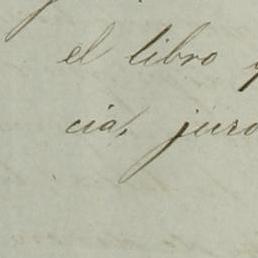 el libro
cia, juro